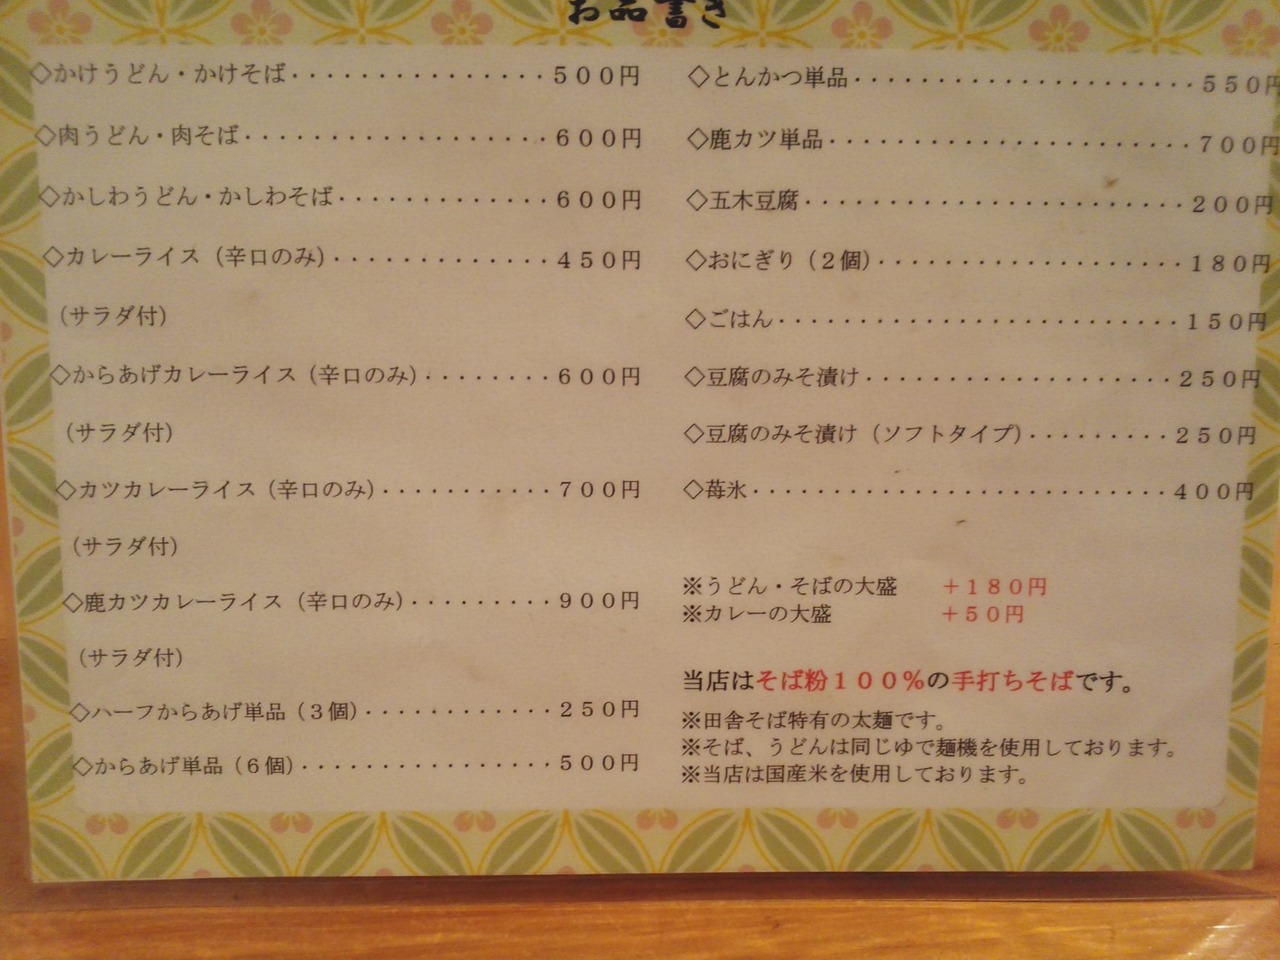 お品書き
◇かけうどん・かけそば・・・・・・・・・・・・・・・500円
◇肉うどん・肉そば・・・・・・・・・・・・・・・・・・600円
◇かしわうどん・かしわそば・・・・・・・・・・・・・600円
◇カレーライス（辛口のみ）・・・・・・・・・・・・・450円
（サラダ付）
◇からあげカレーライス（辛口のみ）・・・・・・・・600円
（サラダ付）
◇カツカレーライス（辛口のみ）・・・・・・・・・・・700円
（サラダ付）
◇鹿カツカレーライス（辛口のみ）・・・・・・・・・900円
（サラダ付）
◇ハーフからあげ単品（３個）・・・・・・・・・・・・250円
◇からあげ単品（６個）・・・・・・・・・・・・・・・・500円
◇とんかつ単品・・・・・・・・・・・・・・・・・・・・・550円
◇鹿カツ単品・・・・・・・・・・・・・・・・・・・・・・700円
◇五木豆腐・・・・・・・・・・・・・・・・・・・・・・・200円
◇おにぎり（２個）・・・・・・・・・・・・・・・・・・・180円
◇ごはん・・・・・・・・・・・・・・・・・・・・・・・・・150円
◇豆腐のみそ漬け・・・・・・・・・・・・・・・・・・・250円
◇豆腐のみそ漬け（ソフトタイプ）・・・・・・・・・250円
◇苺氷・・・・・・・・・・・・・・・・・・・・・・・・・・400円
※うどん・そばの大盛　＋１８０円
※カレーの大盛　＋５０円
当店はそば粉１００％の手打ちそばです。
※田舎そば特有の太麺です。
※そば、うどんは同じゆで麺機を使用しております。
※当店は国産米を使用しております。